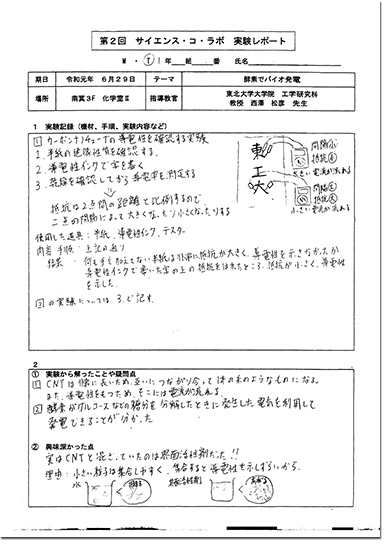 第2回 サイエンス・コ・ラボ 実験レポート
M・T 1年 組 番 氏名
期日 令和元年 6月29日 テーマ 酵素でバイオ発電
場所 南翼3F 化学室Ⅱ 指導教官 東北大学大学院 工学研究科
教授 西澤 松彦 先生
1 実験記録（機材、手順、実験内容など）
1 カーボンナノチューブの導電性を確認する実験
1. 半紙の絶縁性質を確認する.
2. 導電性インクで字を書く
3. 乾燥を確認してから導電率を測定する
抵抗は2点間の距離と比例するので
二点の間隔によって大きくなったり小さくなったりする
東工大
間隔 小
抵抗 小
大きい電流が流れる
間隔 大
抵抗 大
小さい電流が流れる
使用した道具：半紙、導電性インク、テスター
内容・手順：上記の通り
結果：何も手を加えてない半紙は非常に抵抗が大きく、導電性を示さなかったが
導電性インクで書いた字の上の抵抗をはかったところ、抵抗が小さく、導電性
を示した.
2 の実験については 3. で記す.
2
① 実験から解ったことや疑問点
1 CNTは非常に長いため、互いにつながり合って1本の糸のようなものになる。
また、導電性をもつため、そこには電流が流れる.
2 酵素がグルコースなどの糖分を分解したときに発生した電気を利用して
発電できることが分かった.
② 興味深かった点
実はCNTと混ざっていたのは界面活性剤だった!!
理由：小さい粒子は集合しやすく、集合すると導電性を示しずらいから.
水
界面活性剤